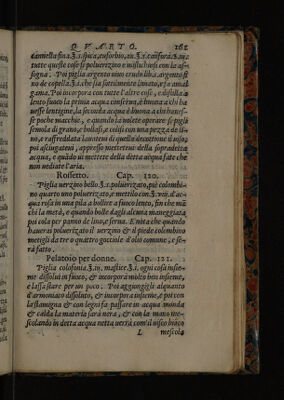 QVARTO. 161
cannella fina.ʒ.i. spica, euforbio, an.ʒ.i. canfora.ʒ.iii.
tutte queste cose si poluerizino e mistichinsi con la as-
sogna. Poi piglia argento uiuo crudo lib.i. argento fi
no de copella.ʒ.i. che sia sottilmente limato, e fa amal-
gama. Poi incorpora con tutte l'altre cose, e distilla a
lento fuoco la prima acqua conserua, è buona a chi ha
uesse lentigine, la seconda acqua è buona a chi hauess-
se poche macchie, e quando la uolete operare se pigli
semola di grano, e bulisci, e colisi con una pezza de li-
no, e raffreddata lauateui di quella deuotione il uiso,
poi asciugateui, appresso metteteui della sopradetta
acqua, e quãdo ui mettete della detta acqua fate che
non uediate l'aria.
Rossetto. Cap. 120.
Piglia uerzino bello.ʒ.i. poluerizato, piè colombi-
no quarto uno poluerizato, e mettilo con.ʒ.viii. d'ac-
qua rosa in una pila a bollire a fuoco lento, fin che mã
chi la metà, e quando bolle dagli alcuna maneggiata
poi cola per panno de lino, e serua. E nota che quando
hauerai poluerizato il uerzino & il piede colombino
metegli da tre o quattro gocciole d'olio comune, e se-
rà fatto.
Pelatoio per donne. Cap. 121.
Piglia colofonia.ʒ.iii. mastice.ʒ.i. ogni cosa insie-
me dissolui in fuoco, & incorpora molto ben insieme,
e lassa stare per un poco. Poi aggiongigli alquanto
d'armoniaco dissoluto, & incorpora insieme, e poi con
la stamigna & con legni fa passare in acqua monda
& calda la materia sarà nera, & con la mano me-
scolando in detta acqua netta uerrà com'il uisco biãco
L mescola